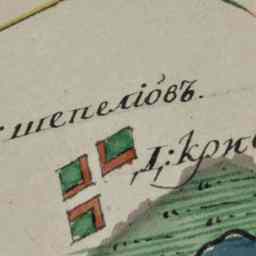 шепелiовъ.
Д: